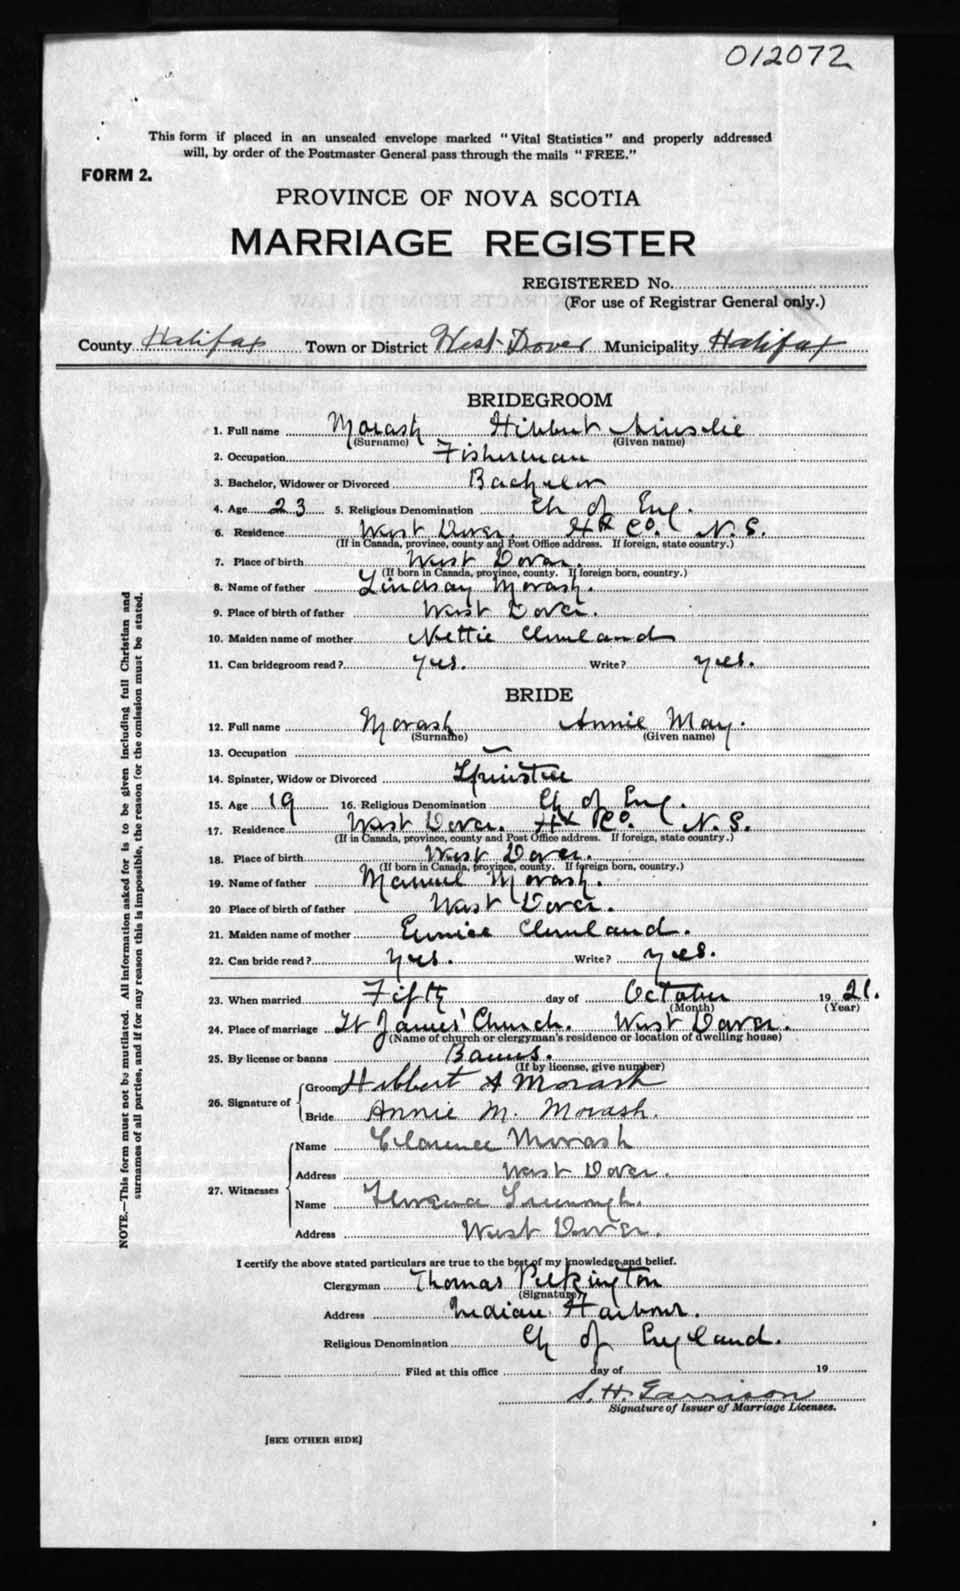 012072
This form if placed in an unsealed envelope marked "Vital Statistics" and properly addressed
will, by order of the Postmaster General pass through the mails "FREE."
FORM 2.
PROVINCE OF NOVA SCOTIA
MARRIAGE REGISTER
REGISTERED No.
(For use of Registrar General only.)
County Halifax Town or District West Dover Municipality Halifax
BRIDEGROOM
1. Full name Morash Hibbert Ainslie
(Surname) (Given name)
2. Occupation Fisherman
3. Bachelor, Widower or Divorced Bachelor
4. Age 23 5. Religious Denomination Ch of Eng.
6. Residence West Dover. Hx Co. N. S.
(If in Canada, province, county and Post Office address. If foreign, state country.)
7. Place of birth West Dover.
(If born in Canada, province, county. If foreign born, country.)
8. Name of father Lindsay Morash.
9. Place of birth of father West Dover.
10. Maiden name of mother Nettie Cleveland
11. Can bridegroom read? yes. Write? yes.
BRIDE
12. Full name Morash Annie May.
(Surname) (Given name)
13. Occupation
14. Spinster, Widow or Divorced Spinster
15. Age 19 16. Religious Denomination Ch of Eng.
17. Residence West Dover. Hx Co. N. S.
(If in Canada, province, county and Post Office address. If foreign, state country.)
18. Place of birth West Dover.
(If born in Canada, province, county. If foreign born, country.)
19. Name of father Manuel Morash.
20 Place of birth of father West Dover.
21. Maiden name of mother Eunice Cleveland.
22. Can bride read? yes. Write? yes.
23. When married Fifth day of October 1921.
(Month) (Year)
24. Place of marriage St James' Church. West Dover.
(Name of church or clergyman's residence or location of dwelling house)
25. By license or banns Banns.
(If by license, give number)
26. Signature of Groom Hibbert A Morash
Bride Annie M. Morash.
27. Witnesses
Name Clarence Morash
Address West Dover.
Name Florence Greenough.
Address West Dover.
I certify the above stated particulars are true to the best of my knowledge and belief.
Clergyman Thomas Pilkington
(Signature)
Address Indian Harbour.
Religious Denomination Ch of England.
Filed at this office day of 19
S. H. Garrison
Signature of Issuer of Marriage Licenses.
[SEE OTHER SIDE]
NOTE.—This form must not be mutilated. All information asked for is to be given including full Christian and
surnames of all parties, and if for any reason this is impossible, the reason for the omission must be stated.